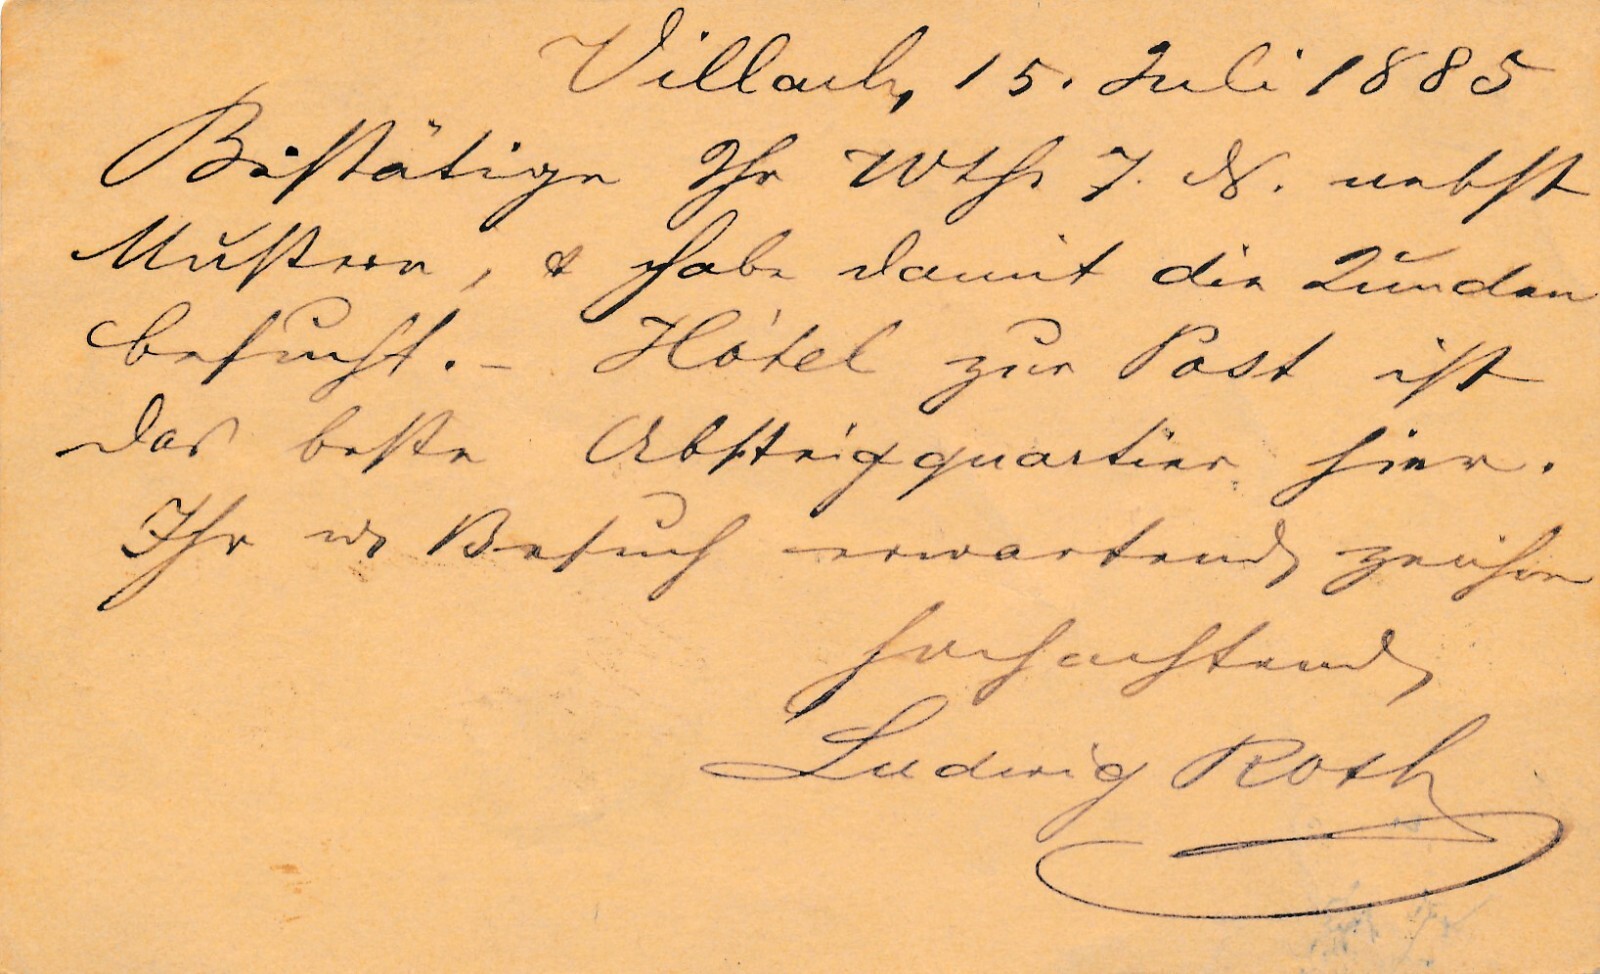 Villach, 15. Juli 1885
Bestätige Ihr Wths 7. d. nebst
Mustern, & habe damit die Kunden
besucht. – Hôtel zur Post ist
das beste Absteigquartier hier.
Ihr w Besuch erwartend, zeichne
hochachtend
Ludwig Roth